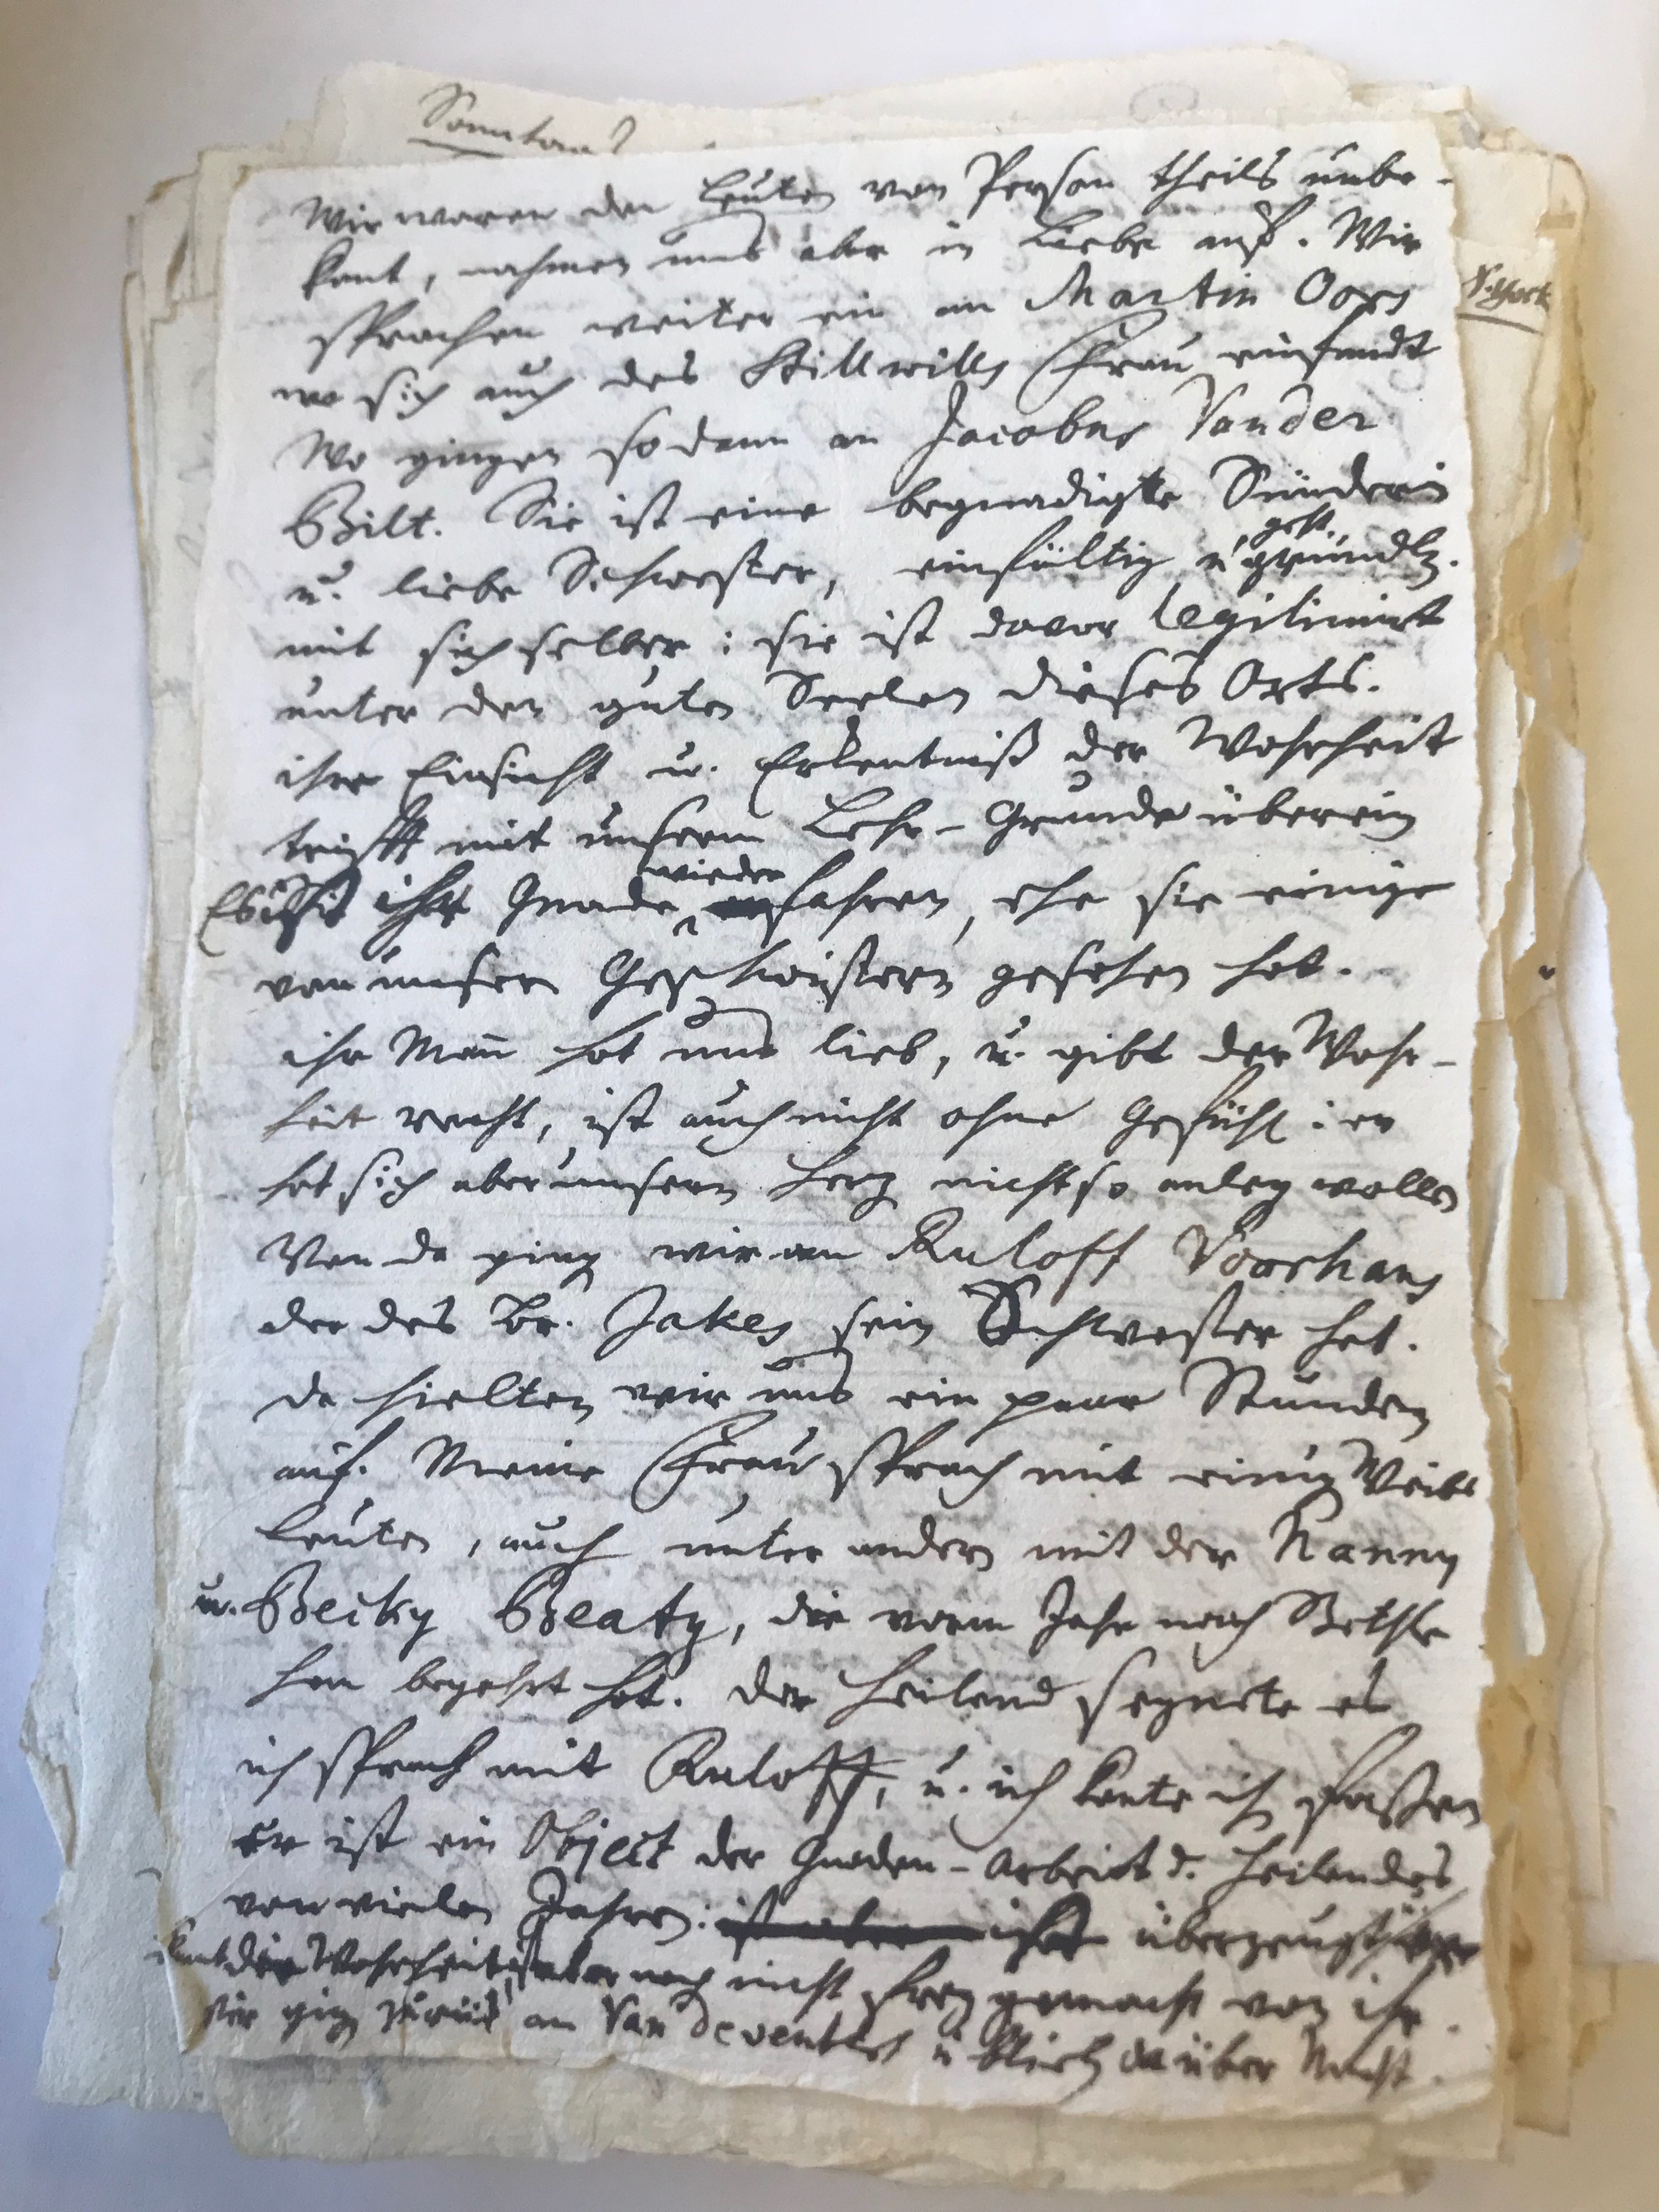 Sonntau
Wir waren den Leuten von Person theils unbe-
kant, nahmen uns aber in Liebe auf. Wir
N. York
sprachen weiter ein an Martin
wo sich auch des Stillwills Frau einfandt
Wo gingen sodann an Jacobus Vander
Bilt. Sie ist eine begnadigte Sünderin
u. liebe Schwester, einfältig u gründl.
mit sich selber: sie ist davor legitimirt
unter den guten Seelen dieses Orts.
ihre Einsicht u. Erkentniß der Wahrheit
trifft mit unserm Lehr-Grunde überein
wieder
Es ist ihr Gnade fahren, ehe sie einige
von unsern Geschwistern gesehen hat.
ihr Man̄ hat uns lieb, u. gibt der Wahr-
heit recht, ist auch nicht ohne Gefühl: er
hat sich aber unserm Herz nicht so anleg wollen
Von da ging wir an Ruloff Voorhans
der des Br. Jakes sein Schwester hat.
da hielten wir uns ein paar Stunden
auf. Meine Frau sprach mit einig Weibs
Leuten, auch unter andern mit der Nanny
u. Becky Beaty, die vorm Jahr nach Bethle
hem begehrt hat. der Heiland segnete es
ich sprach mit Ruloff, u. ich konte ih faßen
er ist ein Object der Gnaden-Arbeit d. Heilandes
von vielen Jahren: ist aber ist überzeugt,
kent die Wahrheit, ist aber noch nicht frey gemacht von ihr.
wir ging zurük an Van Deventers u blieb da über Nacht.